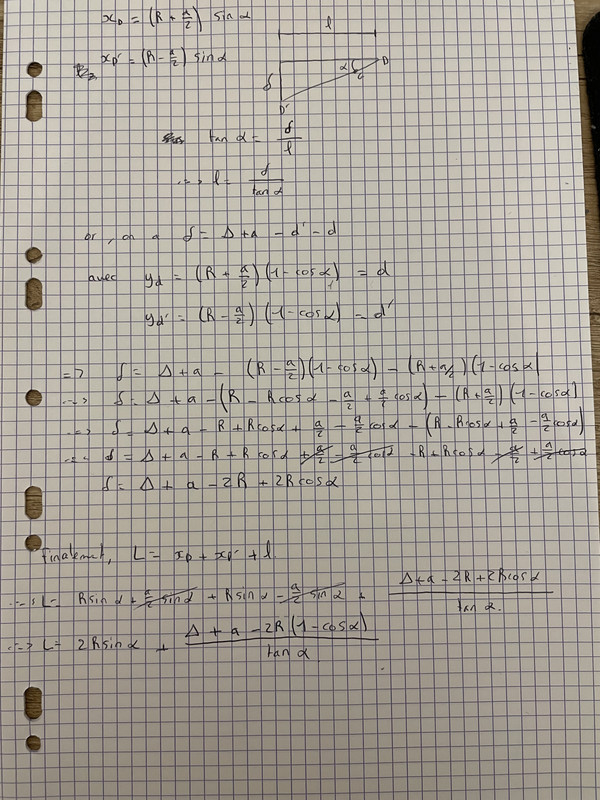 x_D = (R + a/2) sin α
x_D' = (R - a/2) sin α
l
D
α
C
δ
D'
tan α = δ/l
=> l = δ/tan α
or, on a δ = Δ + a - d' - d
avec y_d = (R + a/2)(1 - cos α) = d
y_d' = (R - a/2)(1 - cos α) = d'
=> δ = Δ + a - (R - a/2)(1 - cos α) - (R + a/2)(1 - cos α)
=> δ = Δ + a - (R - R cos α - a/2 + a/2 cos α) - (R + a/2)(1 - cos α)
=> δ = Δ + a - R + R cos α + a/2 - a/2 cos α - (R - R cos α + a/2 - a/2 cos α)
=> δ = Δ + a - R + R cos α + a/2 - a/2 cos α - R + R cos α - a/2 + a/2 cos α
δ = Δ + a - 2R + 2R cos α
Finalement, L = x_D + x_D' + l
=> L = R sin α + a/2 sin α + R sin α - a/2 sin α + (Δ + a - 2R + 2R cos α)/tan α.
=> L = 2R sin α + (Δ + a - 2R(1 - cos α))/tan α